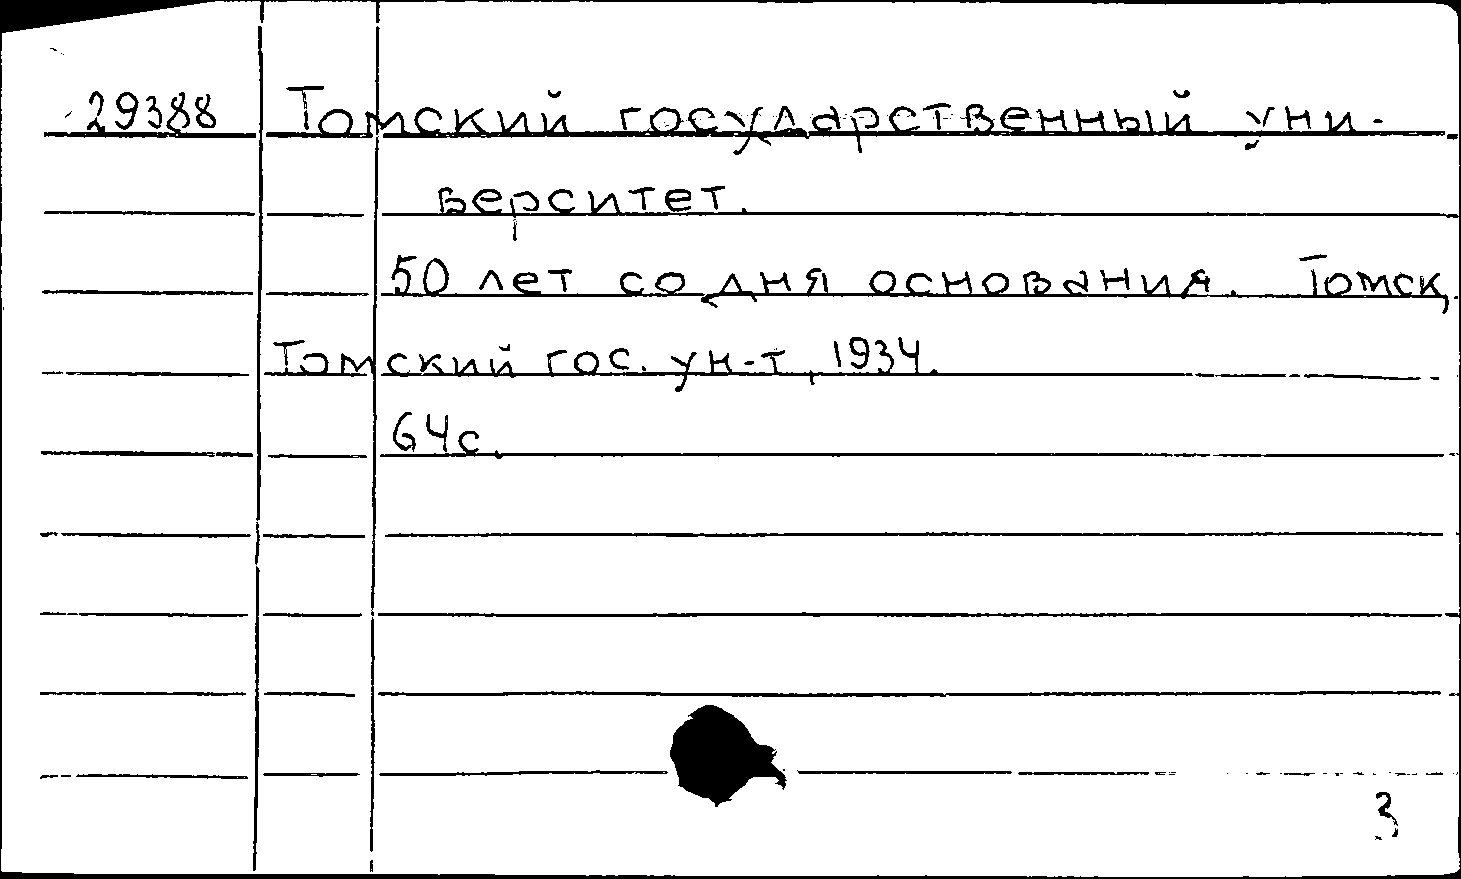 29388 Томский государственный уни-
верситет.
50 лет со дня основания. Томск,
Томский гос. ун-т, 1934.
64с.
3